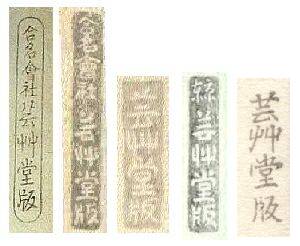 合名會社芸艸堂版
合名會社芸艸堂版
芸艸堂版
芸艸堂版
芸艸堂版